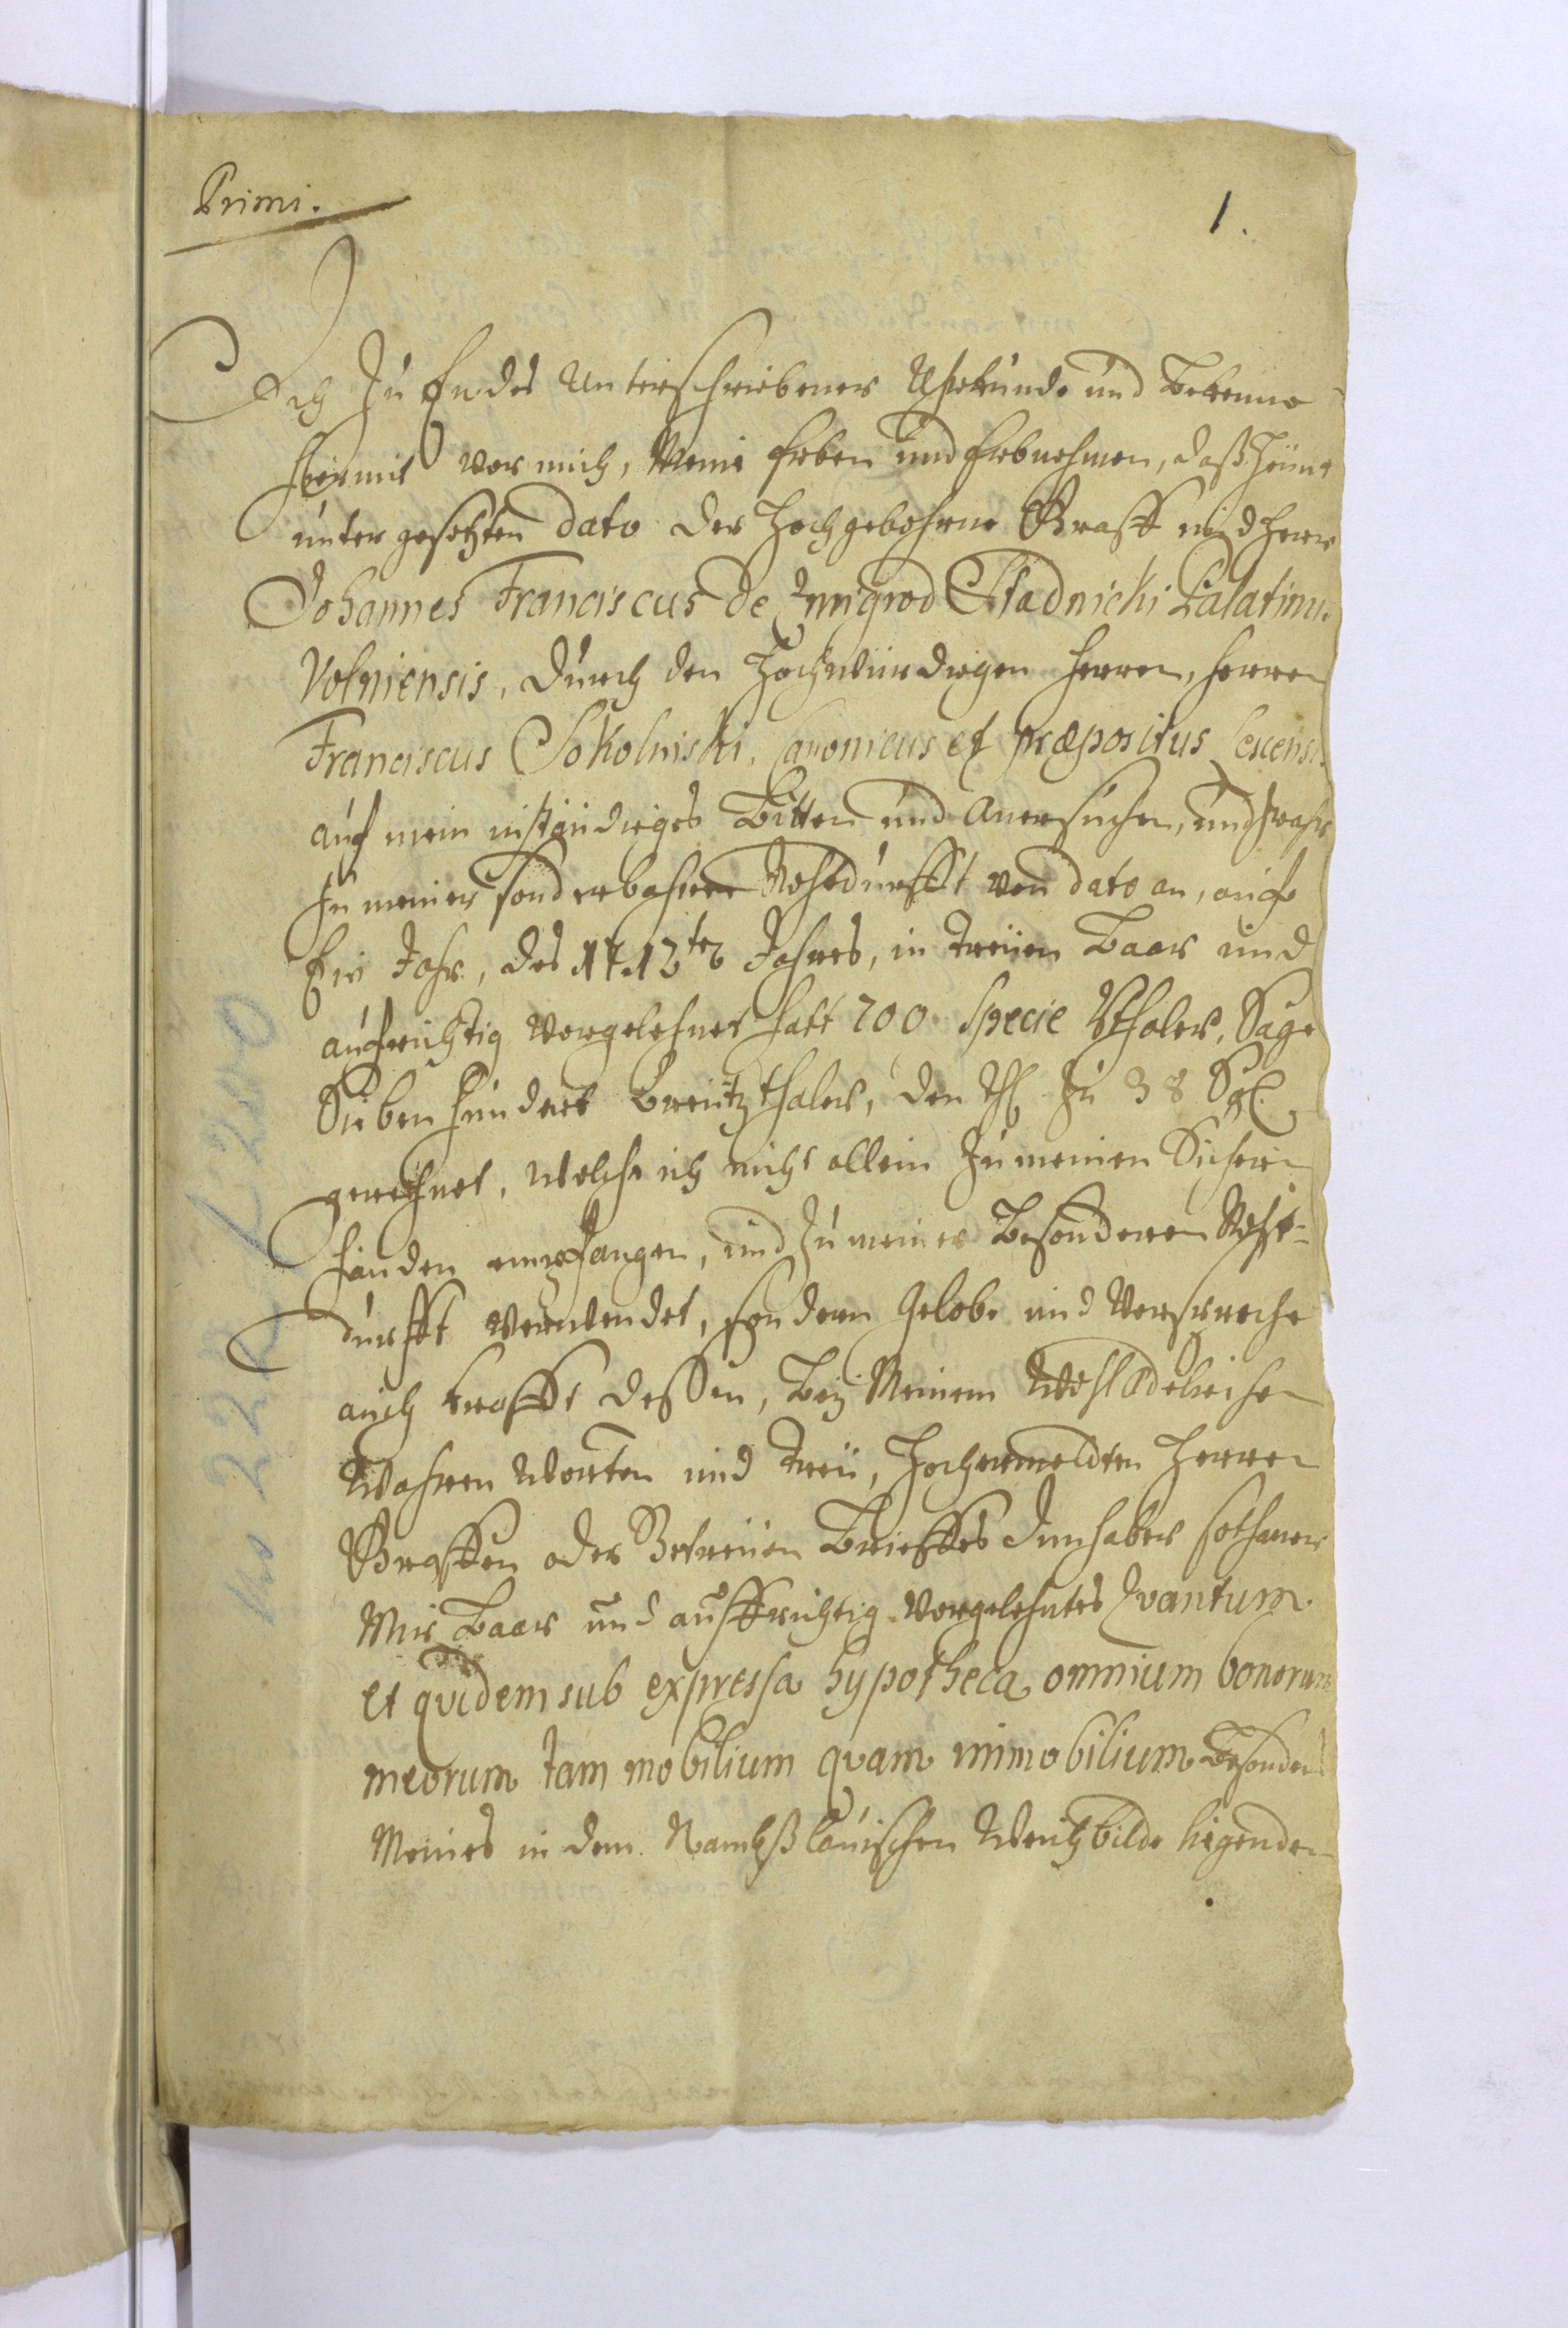 Primi.
1.
Ich Zu Endes Unterschriebener Uhrkunde und Bekenne
hiermit vor mich, Meine Erben und Erbnehmen, daß heunt
unter gesetzten dato der Hochgebohrne Graff und Herr
Johannes Franciscus de Zmigrod Stadnicki Palatinus
Volniensis, durch den Hochwürdigen Herren, Herren
Franciscus Sokolniski, Canonicus et præpositus
auf mein inständieges Bitten und Anersuchen, und zwahr
Zu meiner sonderbahren Nohtdurfft von dato an, auf
Ein Jahr, des 1712ten Jahres, in treüen Baar und
aufrichtig vorgelehnet hatt 700 Specie Rthaler, Sage
Sieben hundert Creützthaler, den Thl zu 38 Sgl.
gerechnet, Welche ich nicht allein Zu meinen Sichern
händen empfangen, und Zu meiner Besonderen Noht-
durfft verwendet, sondern Gelobe und Verspreche
auch krafft deßen, bey Meinem Wohladeliche
Wahren Worten und treü, Hochermeldten Herren
Graffen oder Getreüen Brieffes Innhaber sothanes
Mir Baar und auffrichtig Vorgelehntes Qvantum
et qvidem sub expressa hypotheca omnium bonorum
meorum tam mobilium qvam immobilium Besonders
Meines in dem Nambßlauischen Weichbilde liegenden